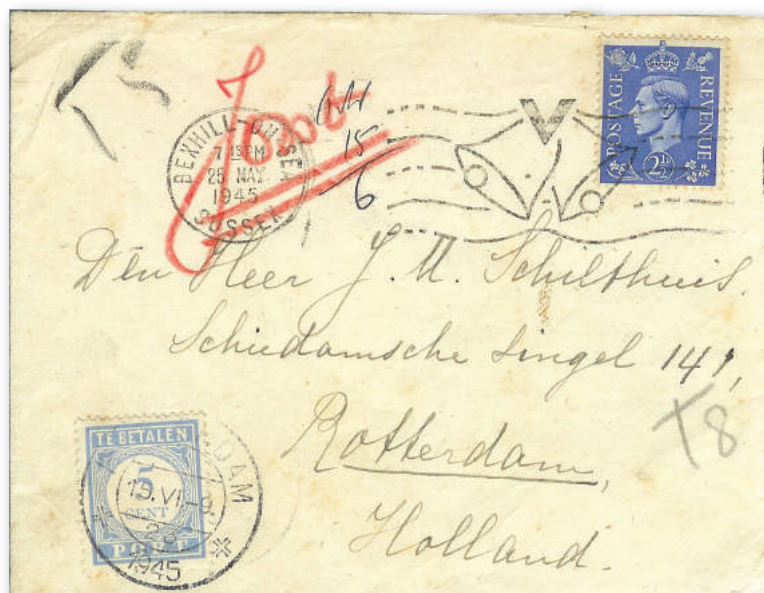 BEXHILL-ON-SEA
25 MAY
1945
SUSSEX
15
6
POSTAGE
REVENUE
2½
Den Heer J. M. Schilthuis.
Schiedamsche Singel 141,
Rotterdam,
Holland.
T8
TE BETALEN
5
CENT
PORT
DAM
19.VI
1945